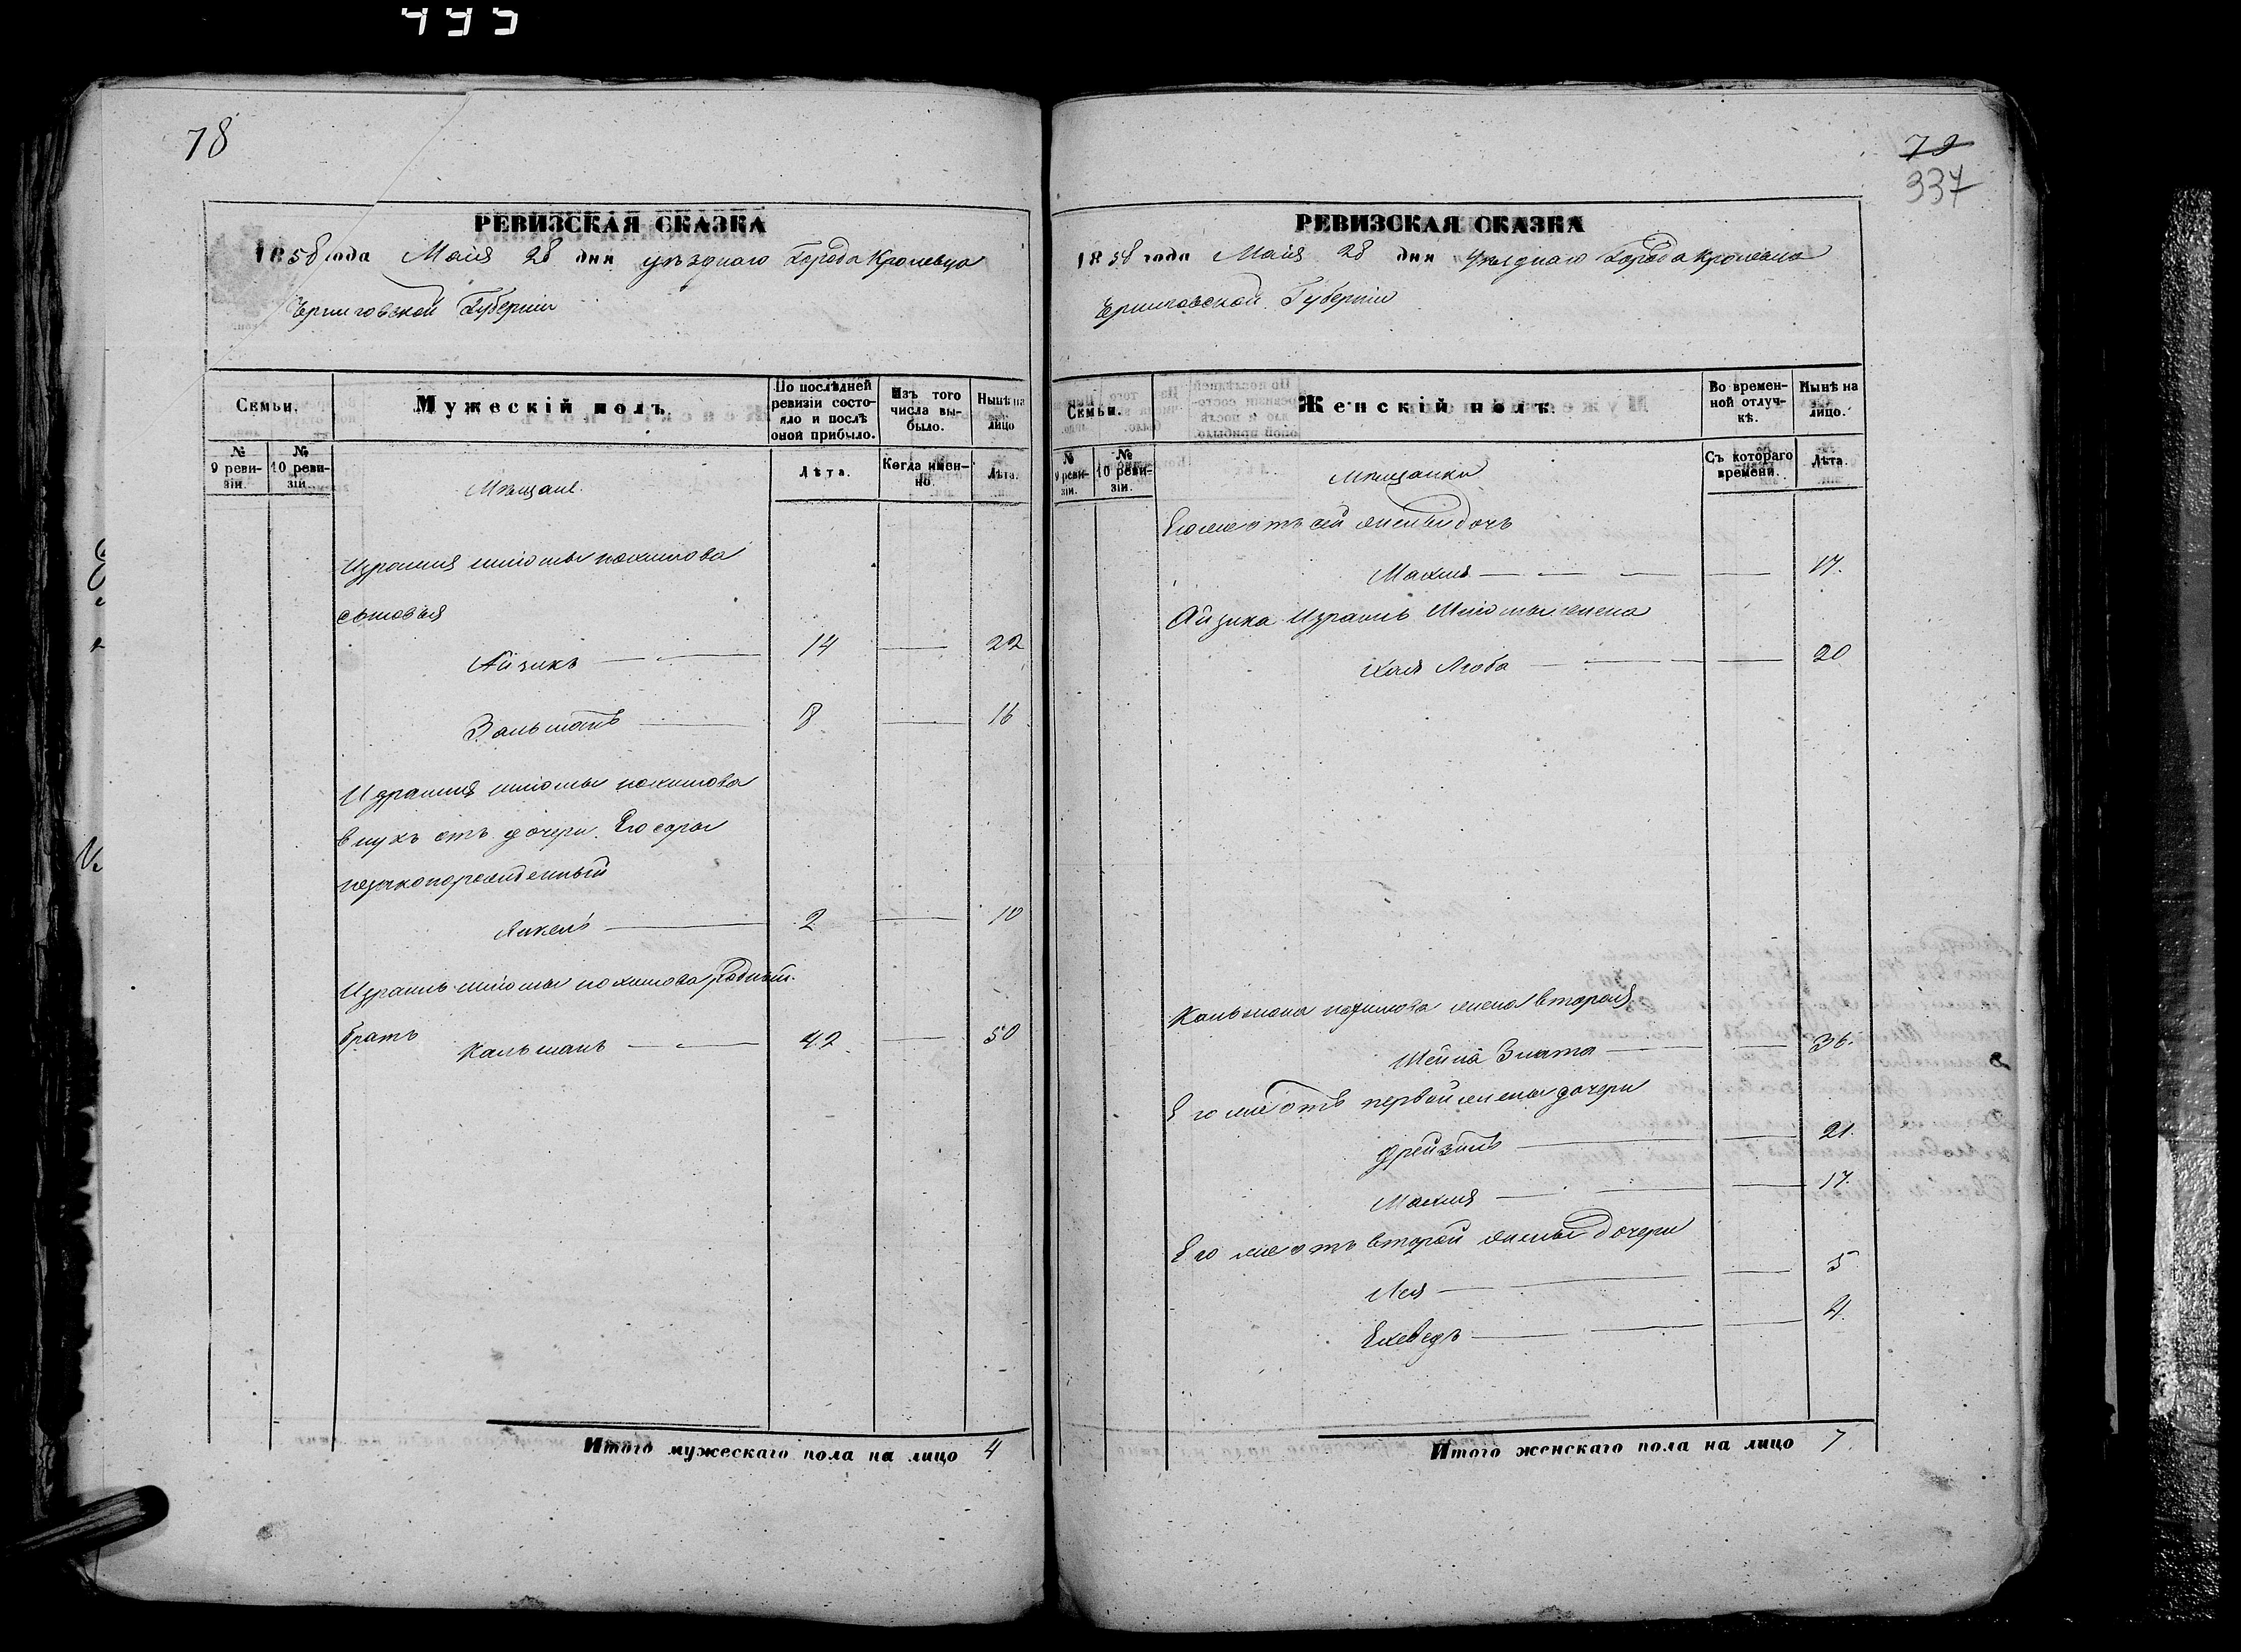 495
78
РЕВИЗСКАЯ СКАЗКА
1858 года Маія 28 дня уѣзднаго Города Кролевца
Черниговской Губерніи
Семьи.
Мужескій полъ.
По послѣдней ревизіи состояло и послѣ оной прибыло.
Изъ того числа выбыло.
Нынѣ на лицо
№ 9 ревизіи.
№ 10 ревизіи
Лѣта.
Когда именно.
Лѣта.
Мѣщане.
сыновья
Айзикъ 14 22
Зальманъ 8 16
внукъ отъ дочери Его Сары
незаконорожденный
Янкель 2 10
родный
братъ Кальманъ 42 50
Итого мужескаго пола на лицо 4
79
337
РЕВИЗСКАЯ СКАЗКА
1858 года Маія 28 дня Уѣзднаго Города Кролевца
Черниговской Губерніи
Семьи.
Женскій полъ.
Во временной отлучкѣ.
Нынѣ на лицо.
№ 9 ревизіи.
№ 10 ревизіи.
Съ котораго времени.
Лѣта.
Мѣщанки
Его же отъ сей жены дочь
Махля 17.
Айзика Израиль Шліомы жена
Хая Люба 20
жена вторая
Шейна Злата 36.
Его же отъ первой жены дочери
Дрейзиль 21.
Махля 17.
Его же отъ второй жены дочери
Лея 5
Ехеведъ 4.
Итого женскаго пола на лицо 7